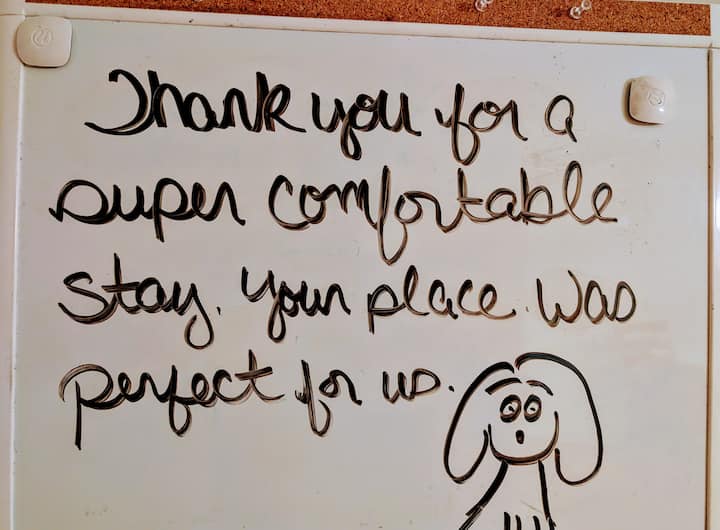 Thank you for a
super comfortable
stay. Your place was
perfect for us.